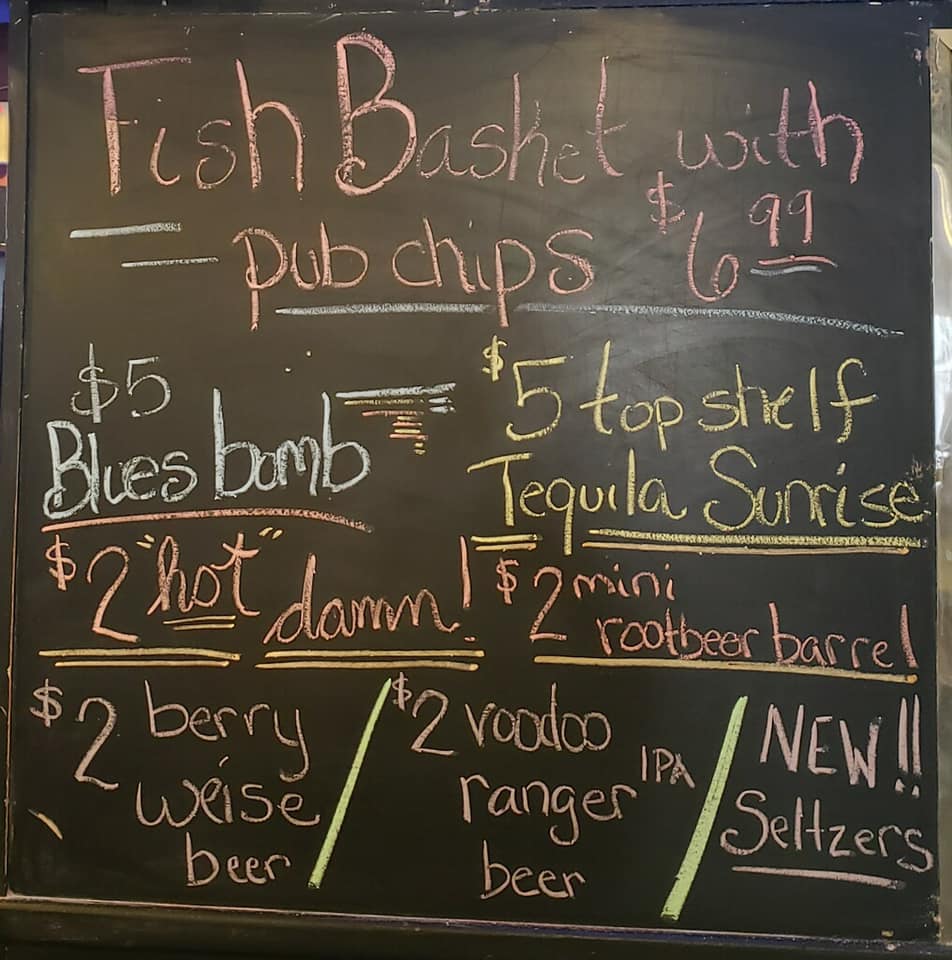 Fish Basket with
pub chips $6.99
$5
Blues bomb
$5 top shelf
Tequila Sunrise
$2 "hot" damn!
$2 mini
rootbeer barrel
$2 berry
weise
beer
$2 voodoo
ranger IPA
beer
NEW!!
Seltzers